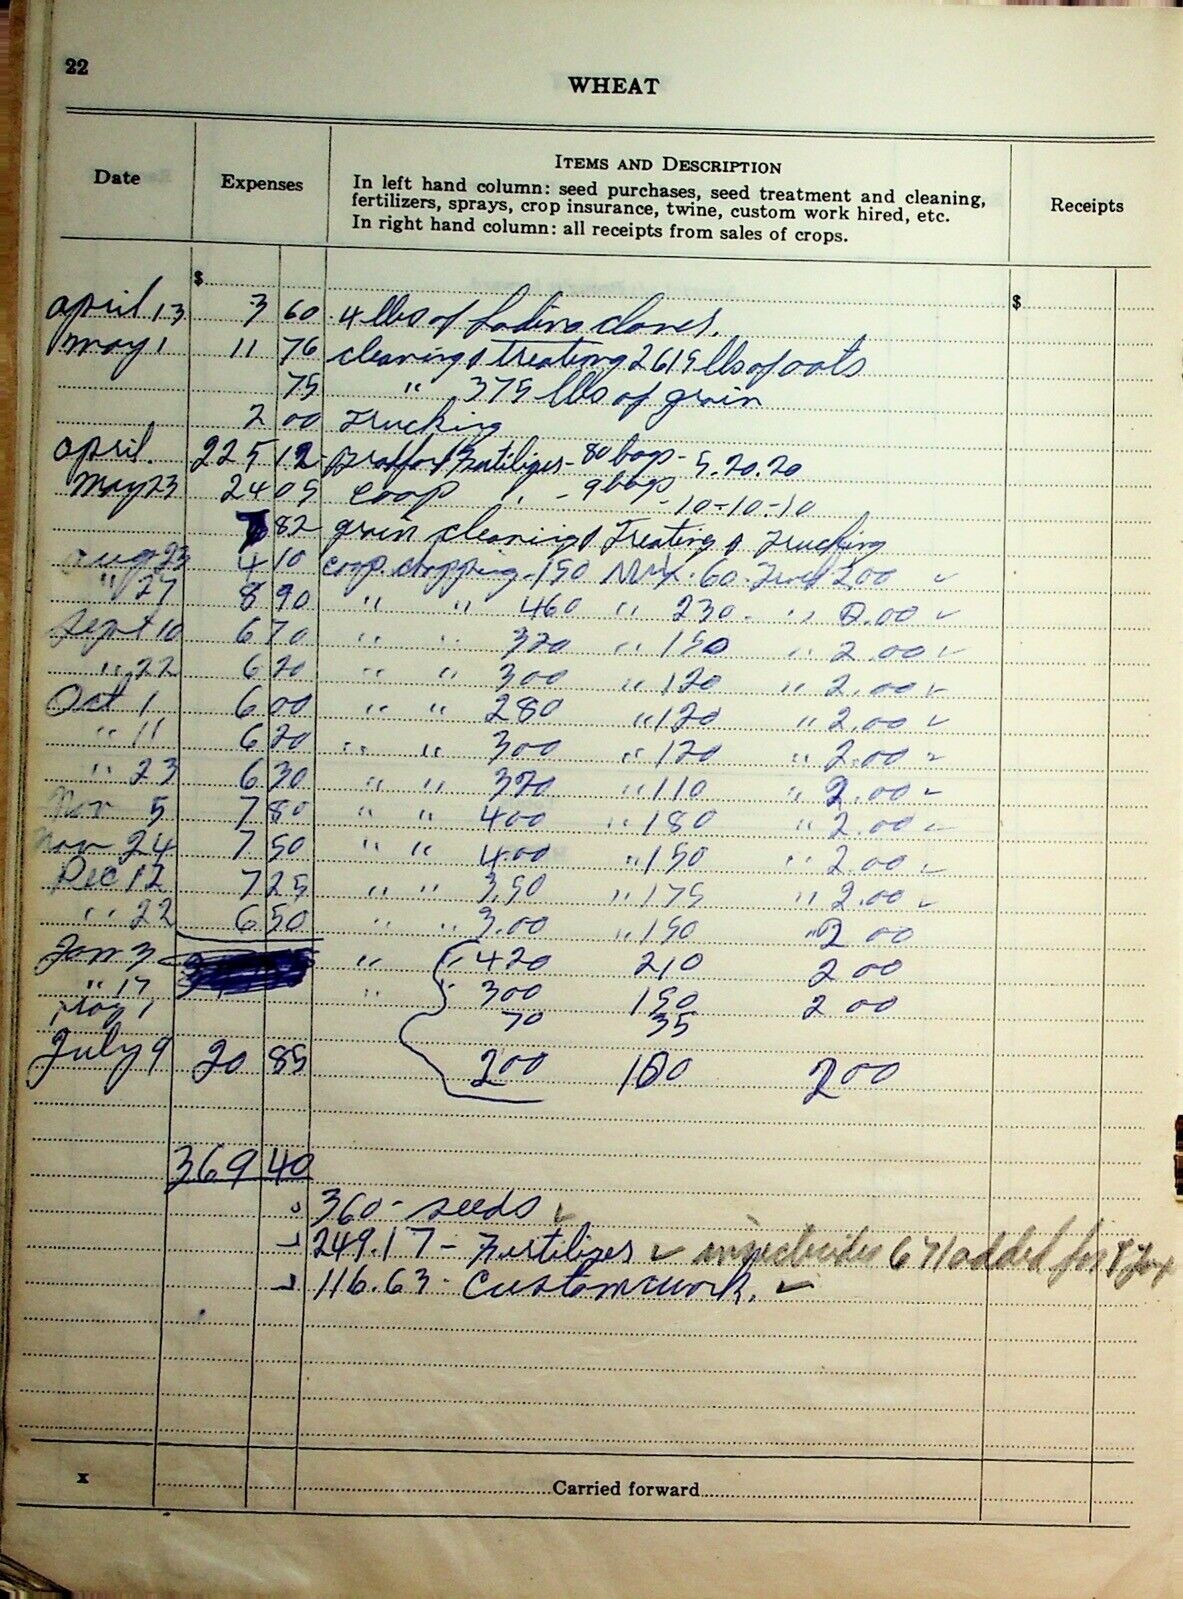 22
WHEAT
Date Expenses ITEMS AND DESCRIPTION Receipts
In left hand column: seed purchases, seed treatment and cleaning,
fertilizers, sprays, crop insurance, twine, custom work hired, etc.
In right hand column: all receipts from sales of crops.
$ $
april 13 3 60 4 lbs of ladino clover.
May 1 11 76 cleaning & treating 2615 lbs of oats
75 " 375 lbs of grain
2 00 Trucking
april 225 12 Fertilizer - 80 bags - 5.20.20
May 23 24 05 coop " - 9 bags - 10-10-10
7 82 grain cleaning & Treating & Trucking
aug 23 4 10 coop. chopping. 150 Mix. 60. Truck 200 ✓
" 27 8 90 " " 460 " 230. " 2.00 ✓
Sept 10 6 70 " " 320 " 150 " 2.00 ✓
" 22 6 20 " " 300 " 120 " 2.00 ✓
Oct 1 6 00 " " 280 " 120 " 2.00 ✓
" 11 6 20 " " 300 " 120 " 2.00 ✓
" 23 6 30 " " 320 " 110 " 2.00 ✓
Nov 5 7 80 " " 400 " 180 " 2.00 ✓
Nov 24 7 50 " " 400 " 150 " 2.00 ✓
Dec 12 7 25 " " 3.50 " 175 " 2.00 ✓
" 22 6 50 " " 3.00 " 150 " 2 00
Jan 3 " " 420 210 2 00
" 17 " 300 150 2 00
May 1 70 35
July 9 20 85 200 100 2 00
369 40
360 - seeds ✓
249.17 - Fertilizer ✓ insecticides 671 added for
116.63 - Custom work. ✓
x Carried forward